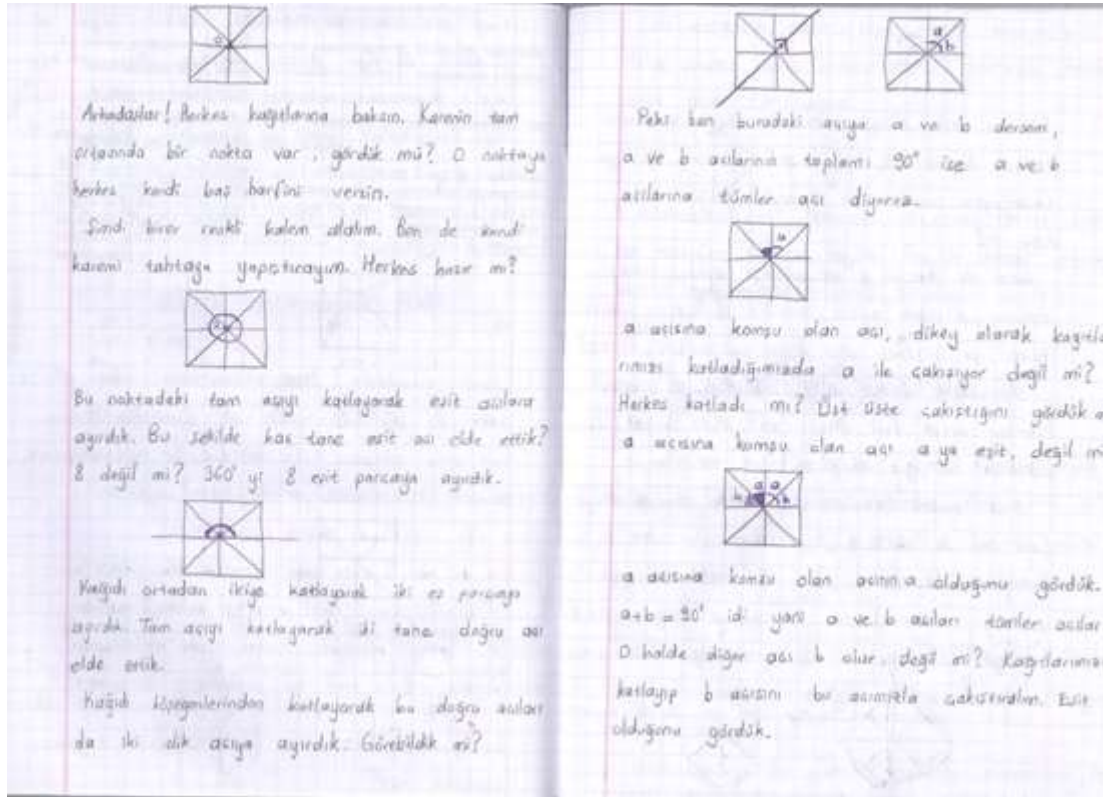 Arkadaşlar! Herkes kağıtlarına baksın. Karenin tam
ortasında bir nokta var, gördük mü? O noktaya
herkes kendi baş harfini versin.
Şimdi birer renkli kalem alalım. Ben de kendi
karemi tahtaya yapıştırayım. Herkes hazır mı?
Bu noktadaki tam açıyı katlayarak eşit açılara
ayırdık. Bu şekilde kaç tane eşit açı elde ettik?
8 değil mi? 360° yi 8 eşit parçaya ayırdık.
Kağıdı ortadan ikiye katlayarak iki eş parçaya
ayırdık. Tam açıyı katlayarak iki tane doğru açı
elde ettik.
Kağıdı köşegenlerinden katlayarak bu doğru açıları
da iki dik açıya ayırdık. Görebildik mi?
a
b
Peki ben buradaki açıya a ve b dersem,
a ve b açılarının toplamı 90° ise a ve b
açılarına tümler açı diyoruz.
a
a açısına komşu olan açı, dikey olarak kağıtla
rımızı katladığımızda a ile çakışıyor değil mi?
Herkes katladı mı? Üst üste çakıştığını gördük
a açısına komşu olan açı a ya eşit, değil mi
a a
b b
a açısına komşu olan açının a olduğunu gördük.
a+b = 90° idi yani a ve b açıları tümler açılar
O halde diğer açı b olur, değil mi? Kağıtlarımızı
katlayıp b açısını bu açımızla çakıştıralım. Eşit
olduğunu gördük.